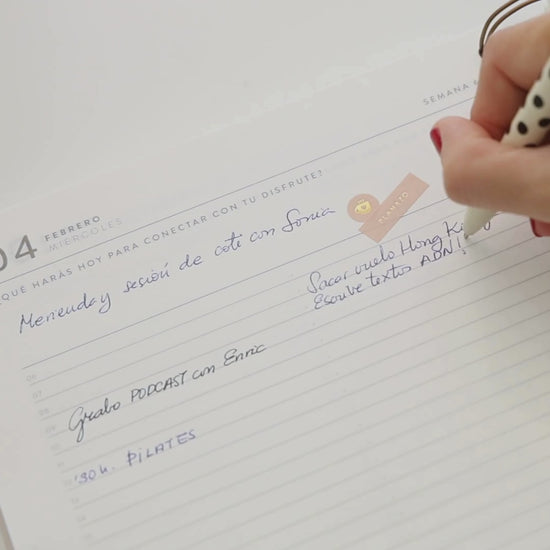 SEMANA
04
FEBRERO
MIÉRCOLES
¿QUÉ HARÁS HOY PARA CONECTAR CON TU DISFRUTE?
Merienda y sesión de coti con Sonia
PLANAZO
Sacar vuelo Hong Kong
Escribe textos ADN!
06
07
08
Grabo PODCAST con Enric
09
10
'30h. PILATES